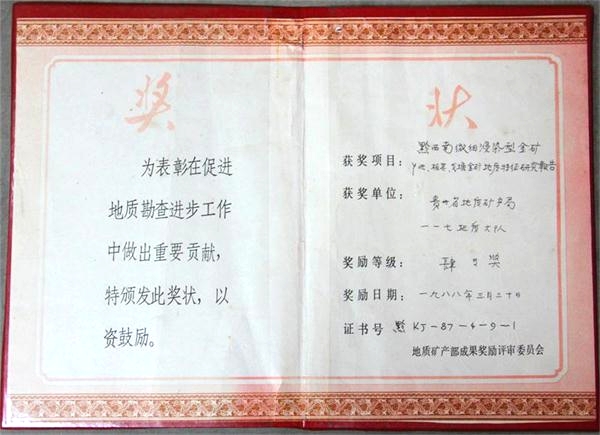 奖状
为表彰在促进
地质勘查进步工作
中做出重要贡献，
特颁发此奖状，以
资鼓励。
获奖项目：黔西南微细浸染型金矿
戈塘金矿地质特征研究报告
获奖单位：贵州省地质矿产局
一一七地质大队
奖励等级：肆等奖
奖励日期：一九八八年三月二十日
证书号 黔KJ-87-4-9-1
地质矿产部成果奖励评审委员会